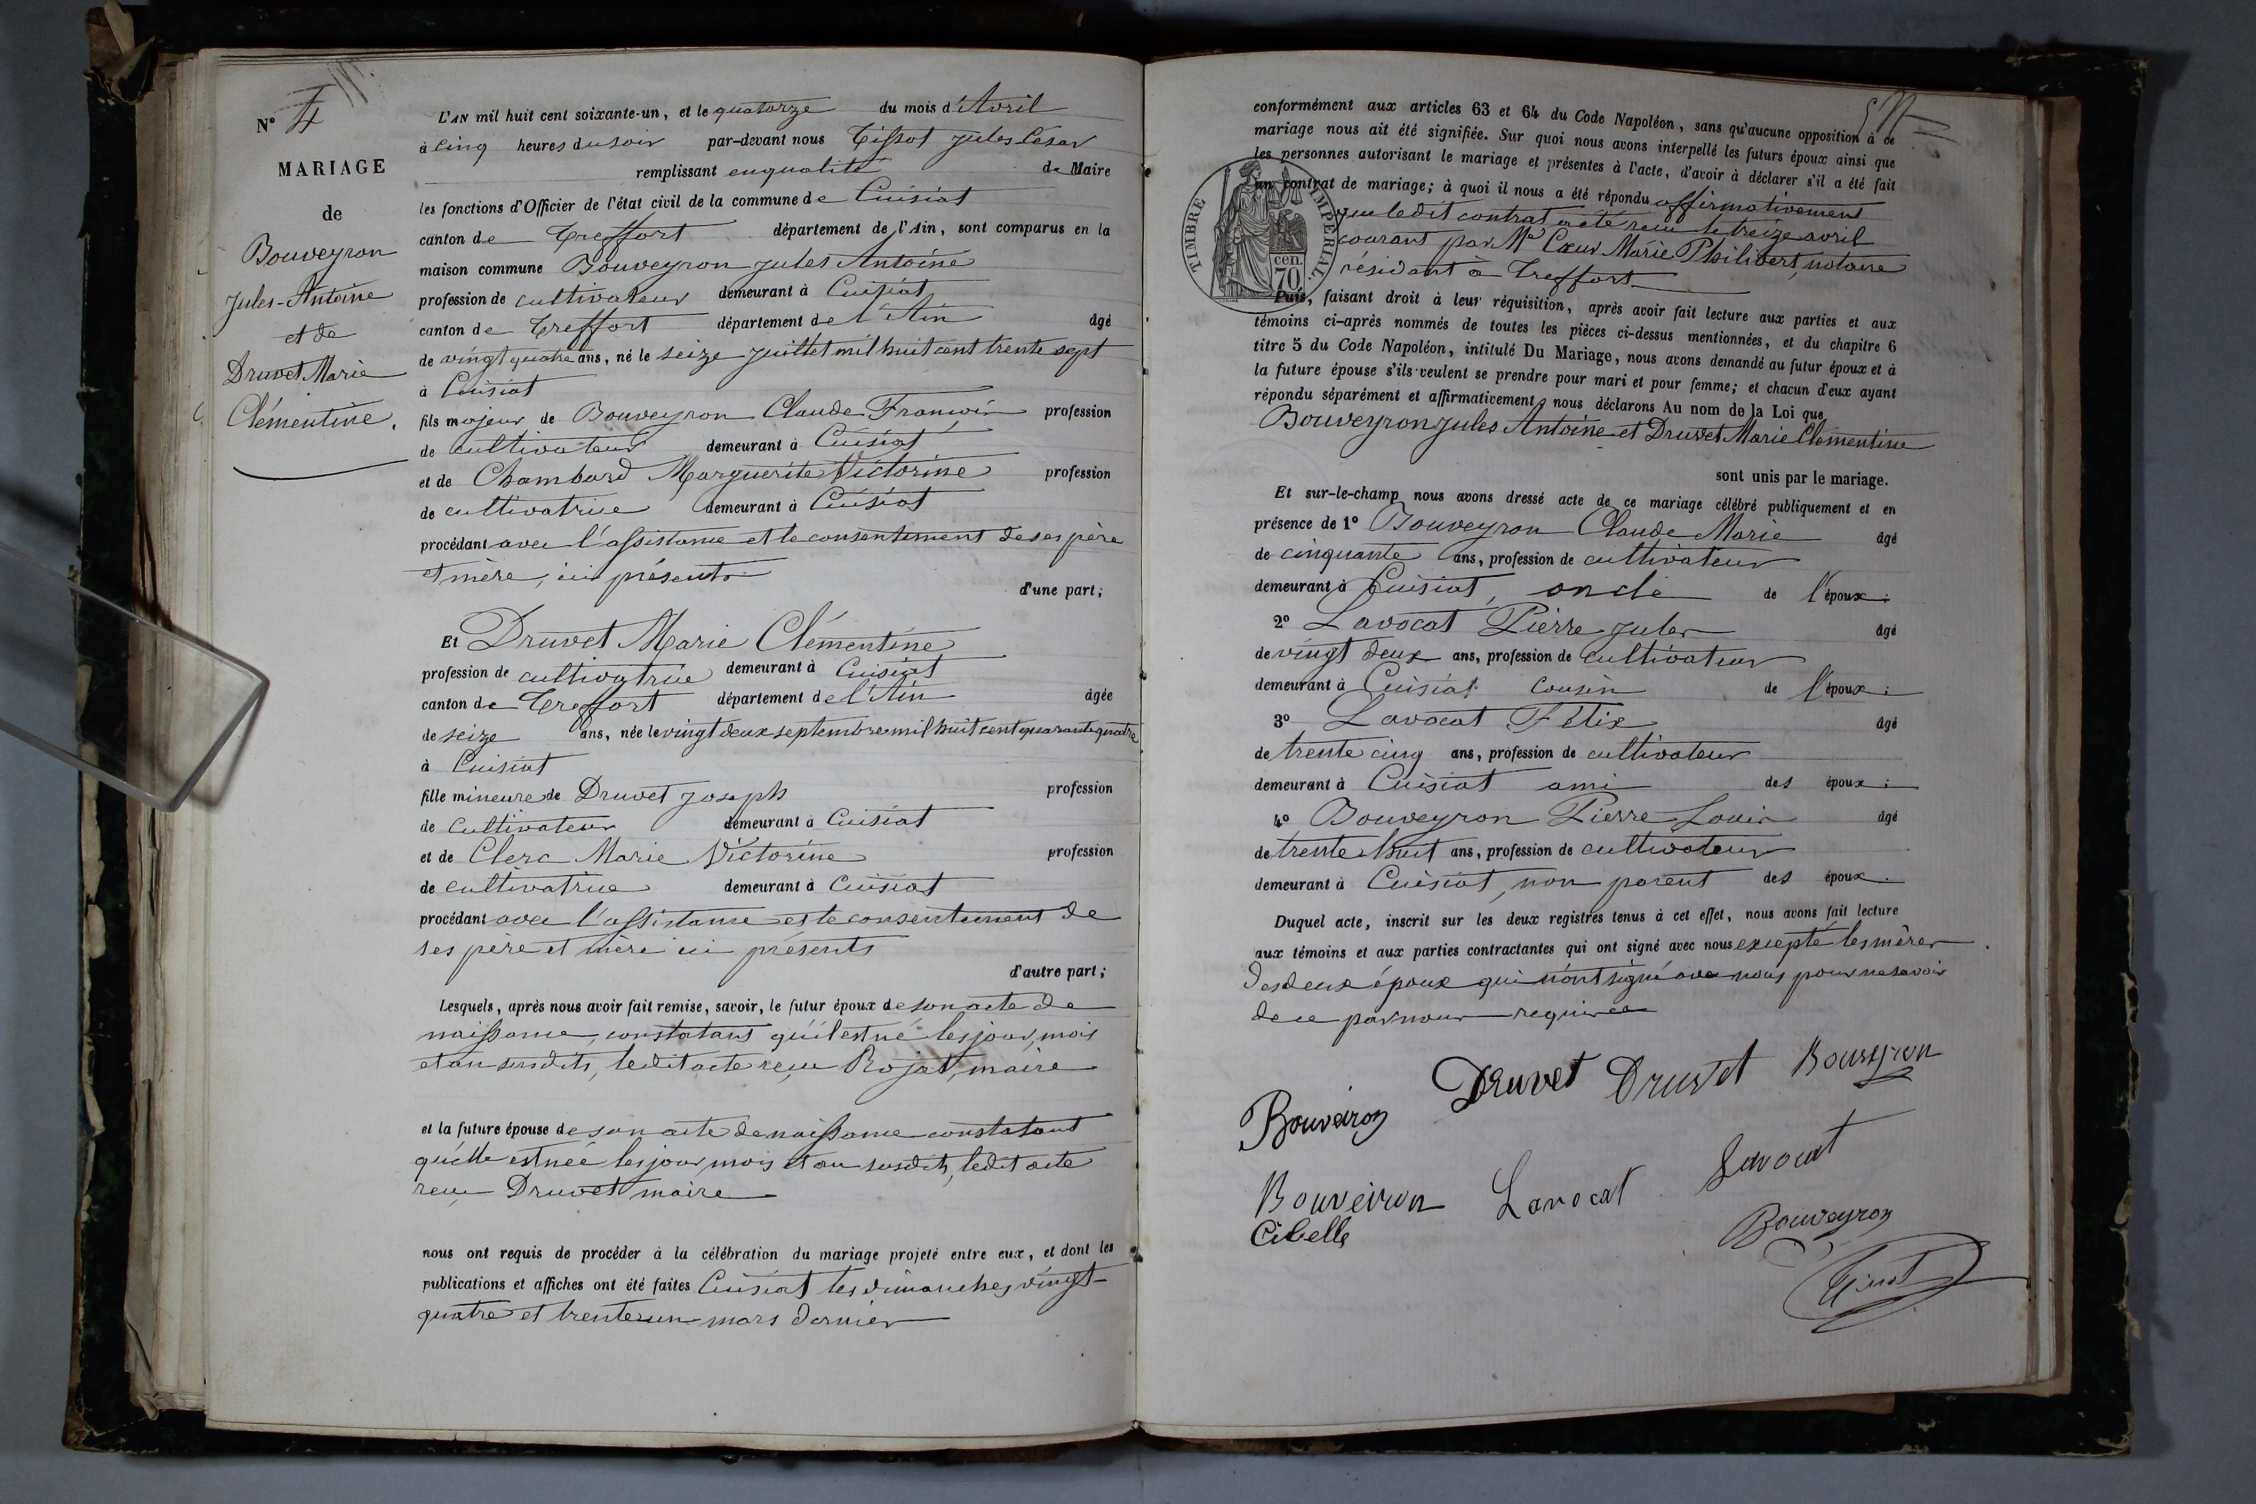 N° 4
MARIAGE
de
Bouveyron
Jules-Antoine
et de
Druvet Marie
Clémentine.
L'AN mil huit cent soixante-un, et le quatorze du mois d'Avril
à cinq heures du soir par-devant nous Tissot Jules César
remplissant en qualité de Maire
les fonctions d'Officier de l'état civil de la commune de Cuisiat
canton de Treffort département de l'Ain, sont comparus en la
maison commune Bouveyron Jules Antoine
profession de cultivateur demeurant à Cuisiat
canton de Treffort département de l'Ain âgé
de vingt quatre ans, né le seize juillet mil huit cent trente sept
à Cuisiat
fils majeur de Bouveyron Claude François profession
de cultivateur demeurant à Cuisiat
et de Chambard Marguerite Victorine profession
de cultivatrice demeurant à Cuisiat
procédant avec l'assistance et le consentement de ses père
et mère, ici présents
d'une part;
Et Druvet Marie Clémentine
profession de cultivatrice demeurant à Cuisiat
canton de Treffort département de l'Ain âgée
de seize ans, née le vingt deux septembre mil huit cent quarante quatre
à Cuisiat
fille mineure de Druvet Joseph profession
de cultivateur demeurant à Cuisiat
et de Clerc Marie Victorine profession
de cultivatrice demeurant à Cuisiat
procédant avec l'assistance et le consentement de
ses père et mère ici présents
d'autre part;
Lesquels, après nous avoir fait remise, savoir, le futur époux de son acte de
naissance, constatant qu'il est né les jour, mois
et an susdits, ledit acte reçu Rojat, maire
et la future épouse de son acte de naissance constatant
qu'elle est née les jour, mois et an susdits, ledit acte
reçu Druvet maire
nous ont requis de procéder à la célébration du mariage projeté entre eux, et dont les
publications et affiches ont été faites Cuisiat les dimanches vingt-
quatre et trente un mars dernier
conformément aux articles 63 et 64 du Code Napoléon, sans qu'aucune opposition à ce
mariage nous ait été signifiée. Sur quoi nous avons interpellé les futurs époux ainsi que
les personnes autorisant le mariage et présentes à l'acte, d'avoir à déclarer s'il a été fait
un contrat de mariage; à quoi il nous a été répondu affirmativement
que ledit contrat a été reçu le treize avril
courant par Me Cœur Marie Philibert, notaire
résidant à Treffort
TIMBRE IMPÉRIAL
70 cen.
Puis, faisant droit à leur réquisition, après avoir fait lecture aux parties et aux
témoins ci-après nommés de toutes les pièces ci-dessus mentionnées, et du chapitre 6
titre 5 du Code Napoléon, intitulé Du Mariage, nous avons demandé au futur époux et à
la future épouse s'ils veulent se prendre pour mari et pour femme; et chacun d'eux ayant
répondu séparément et affirmativement, nous déclarons Au nom de la Loi que
Bouveyron Jules Antoine et Druvet Marie Clémentine
sont unis par le mariage.
Et sur-le-champ nous avons dressé acte de ce mariage célébré publiquement et en
présence de 1° Bouveyron Claude Marie âgé
de cinquante ans, profession de cultivateur
demeurant à Cuisiat, oncle de l'époux;
2° Lavocat Pierre Jules âgé
de vingt deux ans, profession de cultivateur
demeurant à Cuisiat cousin de l'époux;
3° Lavocat Félix âgé
de trente cinq ans, profession de cultivateur
demeurant à Cuisiat ami des époux;
4° Bouveyron Pierre Louis âgé
de trente huit ans, profession de cultivateur
demeurant à Cuisiat, non parent des époux.
Duquel acte, inscrit sur les deux registres tenus à cet effet, nous avons fait lecture
aux témoins et aux parties contractantes qui ont signé avec nous excepté les mères
des deux époux qui n'ont signé avec nous pour ne savoir
de ce par nous requises
Druvet Druvet Bouveyron
Bouveiron
Bouveiron Lavocat Lavocat
Cibelle Bouveyron
Tissot